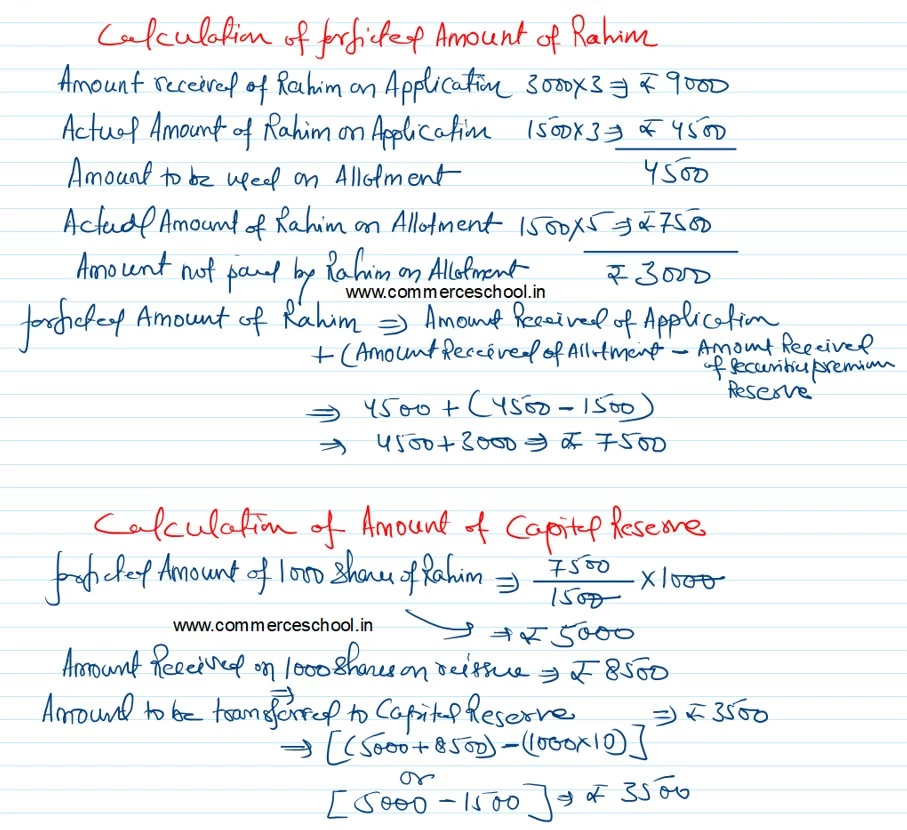 Calculation of forficted Amount of Rahim
Amount received of Rahim on Application 3000×3 ⇒ ₹ 9000
Actual Amount of Rahim on Application 1500×3 ⇒ ₹ 4500
Amount to be used on Allotment 4500
Actual Amount of Rahim on Allotment 1500×5 ⇒ ₹7500
Amount not paid by Rahim on Allotment ₹ 3000
www.commerceschool.in
forficted Amount of Rahim ⇒ Amount Received of Application
+ (Amount Received of Allotment – Amount Received
of Securities premium
Reserve
⇒ 4500 + (4500 – 1500)
⇒ 4500 + 3000 ⇒ ₹ 7500
Calculation of Amount of Capital Reserve
forficted Amount of 1000 Shares of Rahim ⇒ 7500/1500 × 1000
www.commerceschool.in
⇒ ₹ 5000
Amount Received on 1000 Shares on reissue ⇒ ₹ 8500
⇒
Amount to be transferred to Capital Reserve ⇒ ₹ 3500
⇒ [(5000 + 8500) – (1000×10)]
or
[5000 – 1500] ⇒ ₹ 3500